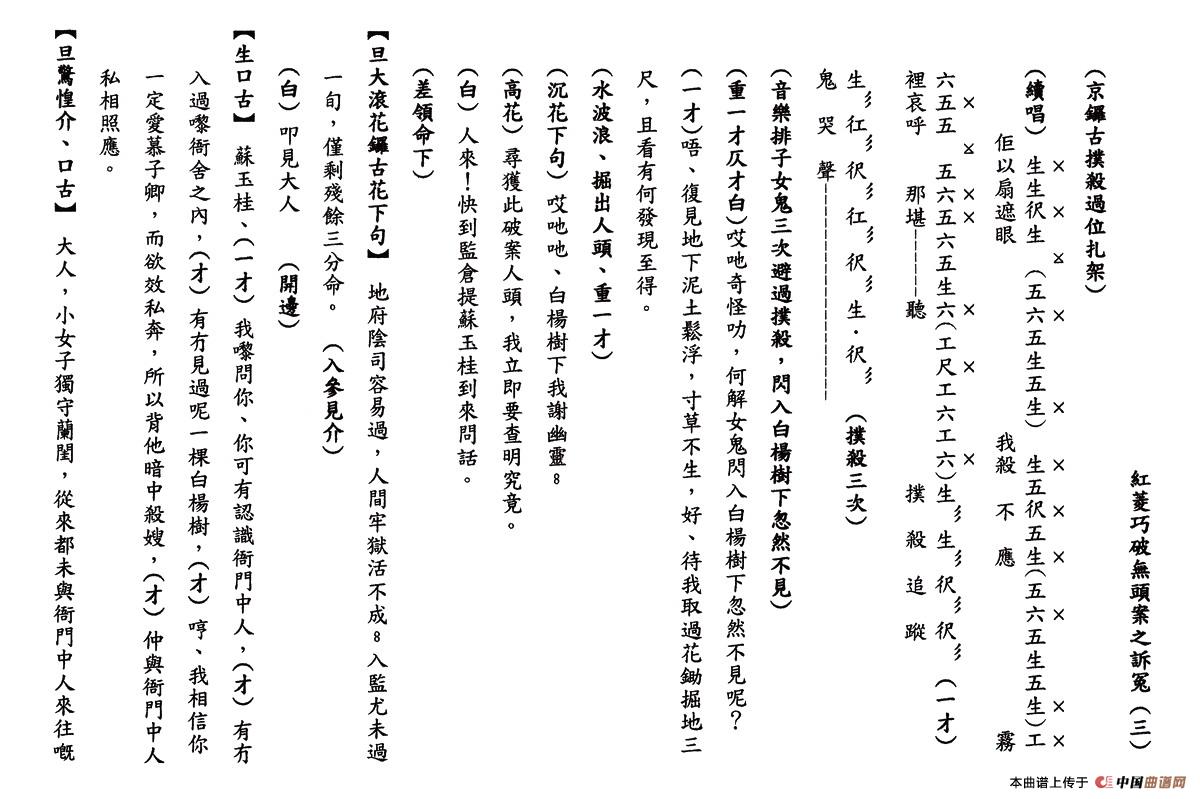 紅菱巧破無頭案之訴冤（三）
（京鑼古撲殺過位扎架）
（續唱）生生伬生（五六五生五生）生五伬五生（五六五生五生）工
佢以扇遮眼 我殺不應 霧
六五五 五六五六五五生六（工尺工六工六）生彡生彡伬彡伬彡（一才）
裡哀呼 那堪－－－－－聽 撲殺追蹤
生彡仜彡伬彡仜彡伬彡生·伬彡（撲殺三次）
鬼哭聲－－－－－－－－－－－－－－－－－
（音樂排子女鬼三次避過撲殺，閃入白楊樹下忽然不見）
（重一才仄才白）哎吔奇怪叻，何解女鬼閃入白楊樹下忽然不見呢？
（一才）唔、復見地下泥土鬆浮，寸草不生，好、待我取過花鋤掘地三
尺，且看有何發現至得。
（水波浪、掘出人頭、重一才）
（沉花下句）哎吔吔、白楊樹下我謝幽靈。
（高花）尋獲此破案人頭，我立即要查明究竟。
（白）人來！快到監倉提蘇玉桂到來問話。
（差領命下）
【旦大滾花鑼古花下句】地府陰司容易過，人間牢獄活不成。入監尤未過
一旬，僅剩殘餘三分命。（入參見介）
（白）叩見大人（開邊）
【生口古】蘇玉桂、（一才）我嚟問你、你可有認識衙門中人，（才）有冇
入過嚟衙舍之內，（才）有冇見過呢一棵白楊樹，（才）哼、我相信你
一定愛慕子卿，而欲效私奔，所以背他暗中殺嫂，（才）仲與衙門中人
私相照應。
【旦驚惶介、口古】大人，小女子獨守蘭閨，從來都未與衙門中人來往嘅
本曲谱上传于 中国曲谱网